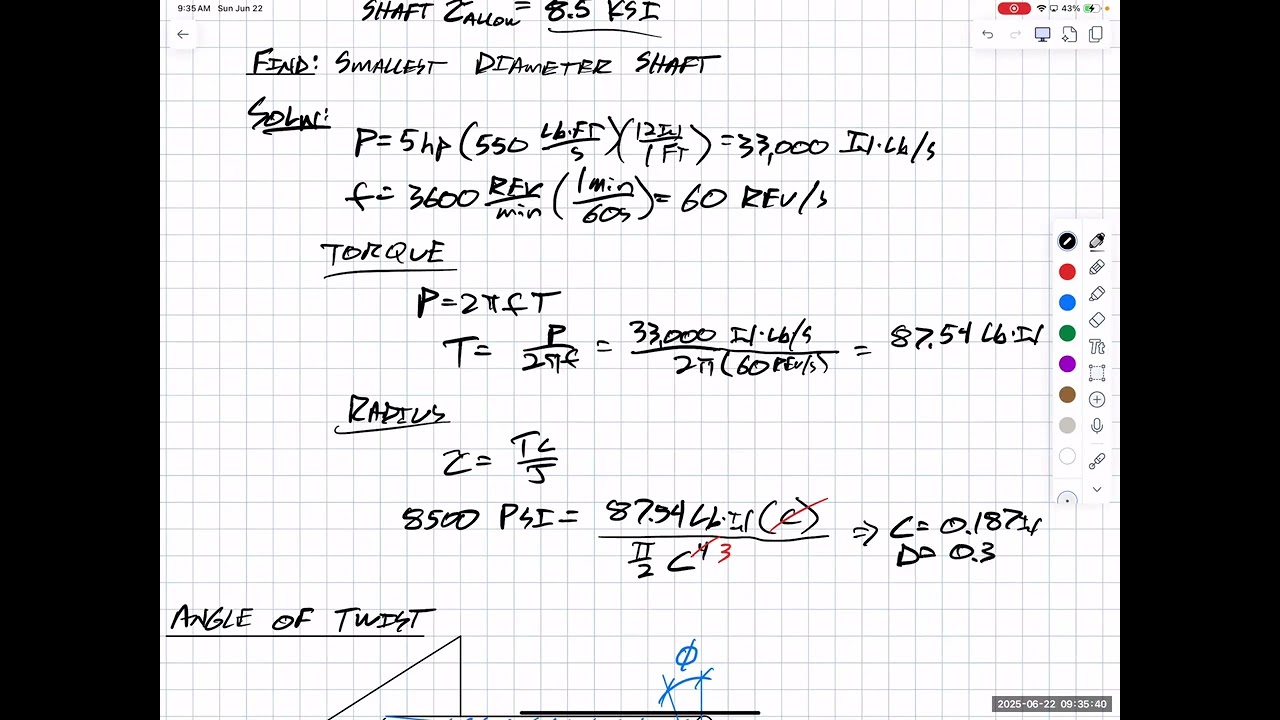 9:35 AM Sun Jun 22
43%
SHAFT τALLOW = 8.5 KSI
FIND: SMALLEST DIAMETER SHAFT
SOLN:
P = 5hp (550 Lb·FT/s)(12IN/1FT) = 33,000 IN·Lb/s
f = 3600 REV/min (1min/60s) = 60 REV/s
TORQUE
P = 2πfT
T = P/2πf = 33,000 IN·Lb/s / 2π(60REV/s) = 87.54 Lb·IN
RADIUS
τ = Tc/J
8500 PSI = 87.54 Lb·IN(c) / π/2 c⁴ 3 ⇒ C = 0.187IN
D= 0.3
ANGLE OF TWIST
ϕ
Tt
2025-06-22 09:35:40